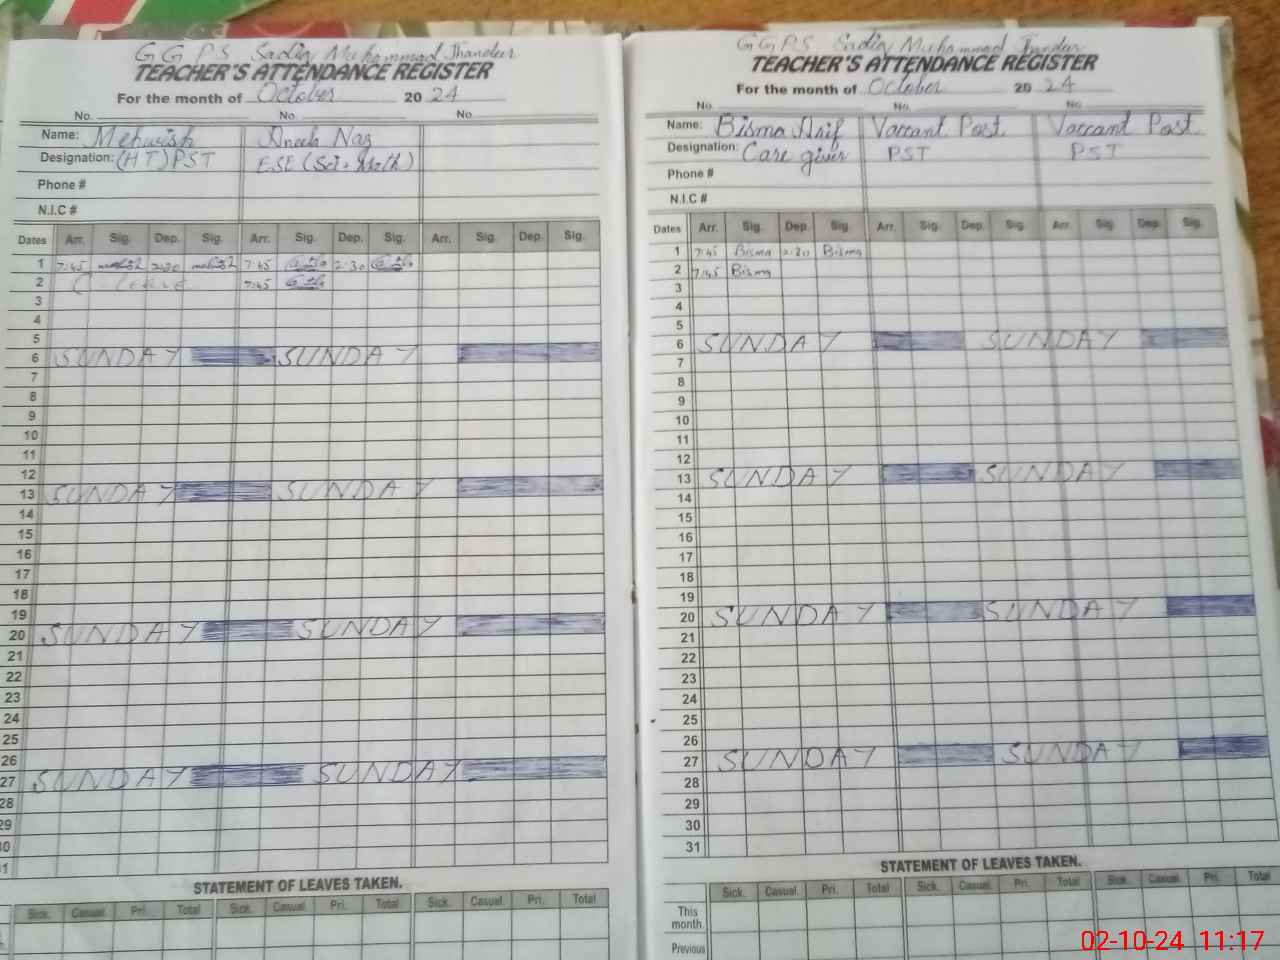 GGPS Sadiq Muhammad Jhandeer
TEACHER'S ATTENDANCE REGISTER
For the month of October 2024
No. No. No.
Name: Mehwish Aneela Naz
Designation: (HT) PST ESE (Sci + Math)
Phone #
N.I.C #
Dates Arr. Sig. Dep. Sig. Arr. Sig. Dep. Sig. Arr. Sig. Dep. Sig.
1 7:45 2:30 7:45 2:30
2 C Leave 7:45
3
4
5
6 SUNDAY SUNDAY
7
8
9
10
11
12
13 SUNDAY SUNDAY
14
15
16
17
18
19
20 SUNDAY SUNDAY
21
22
23
24
25
26
27 SUNDAY SUNDAY
28
29
30
31
STATEMENT OF LEAVES TAKEN.
Sick. Casual. Pri. Total Sick. Casual. Pri. Total Sick. Casual. Pri. Total
GGPS Sadiq Muhammad Jhandeer
TEACHER'S ATTENDANCE REGISTER
For the month of October 2024
No. No. No.
Name: Bisma Arif Vaccant Post Vaccant Post
Designation: Care giver PST PST
Phone #
N.I.C #
Dates Arr. Sig. Dep. Sig. Arr. Sig. Dep. Sig. Arr. Sig. Dep. Sig.
1 7:45 Bisma 2:20 Bisma
2 7:45 Bisma
3
4
5
6 SUNDAY SUNDAY
7
8
9
10
11
12
13 SUNDAY SUNDAY
14
15
16
17
18
19
20 SUNDAY SUNDAY
21
22
23
24
25
26
27 SUNDAY SUNDAY
28
29
30
31
STATEMENT OF LEAVES TAKEN.
Sick. Casual. Pri. Total Sick. Casual. Pri. Total Sick. Casual. Pri. Total
This month.
Previous
02-10-24 11:17